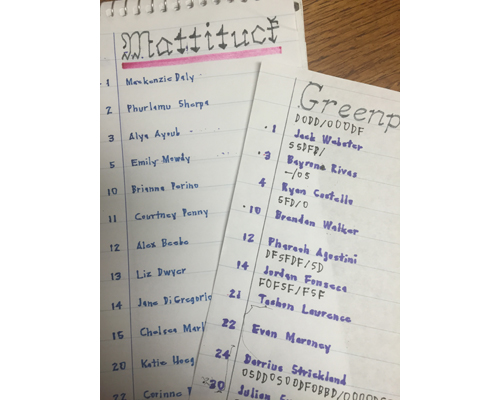 Mattituck
1 Mackenzie Daly
2 Phurlamu Sherpa
3 Alya Ayoub
5 Emily Mowdy
10 Brianna Perino
11 Courtney Penny
12 Alex Beebe
13 Liz Dwyer
14 Jane DiGregorio
15 Chelsea
20 Katie Hoeg
22 Corinne
Greenp
DODD/OOODF
1 Jack Webster
SSDFD/
3 Bayrone Rivas
-/OS
4 Ryan Costello
SFD/O
10 Brandon Walker
12 Pharaoh Agostini
DFSFDF/SD
14 Jordan Fonseca
FOFSF/FSF
21 Tashon Lawrence
22 Evan Maroney
24 Darrius Strickland
30 Julian